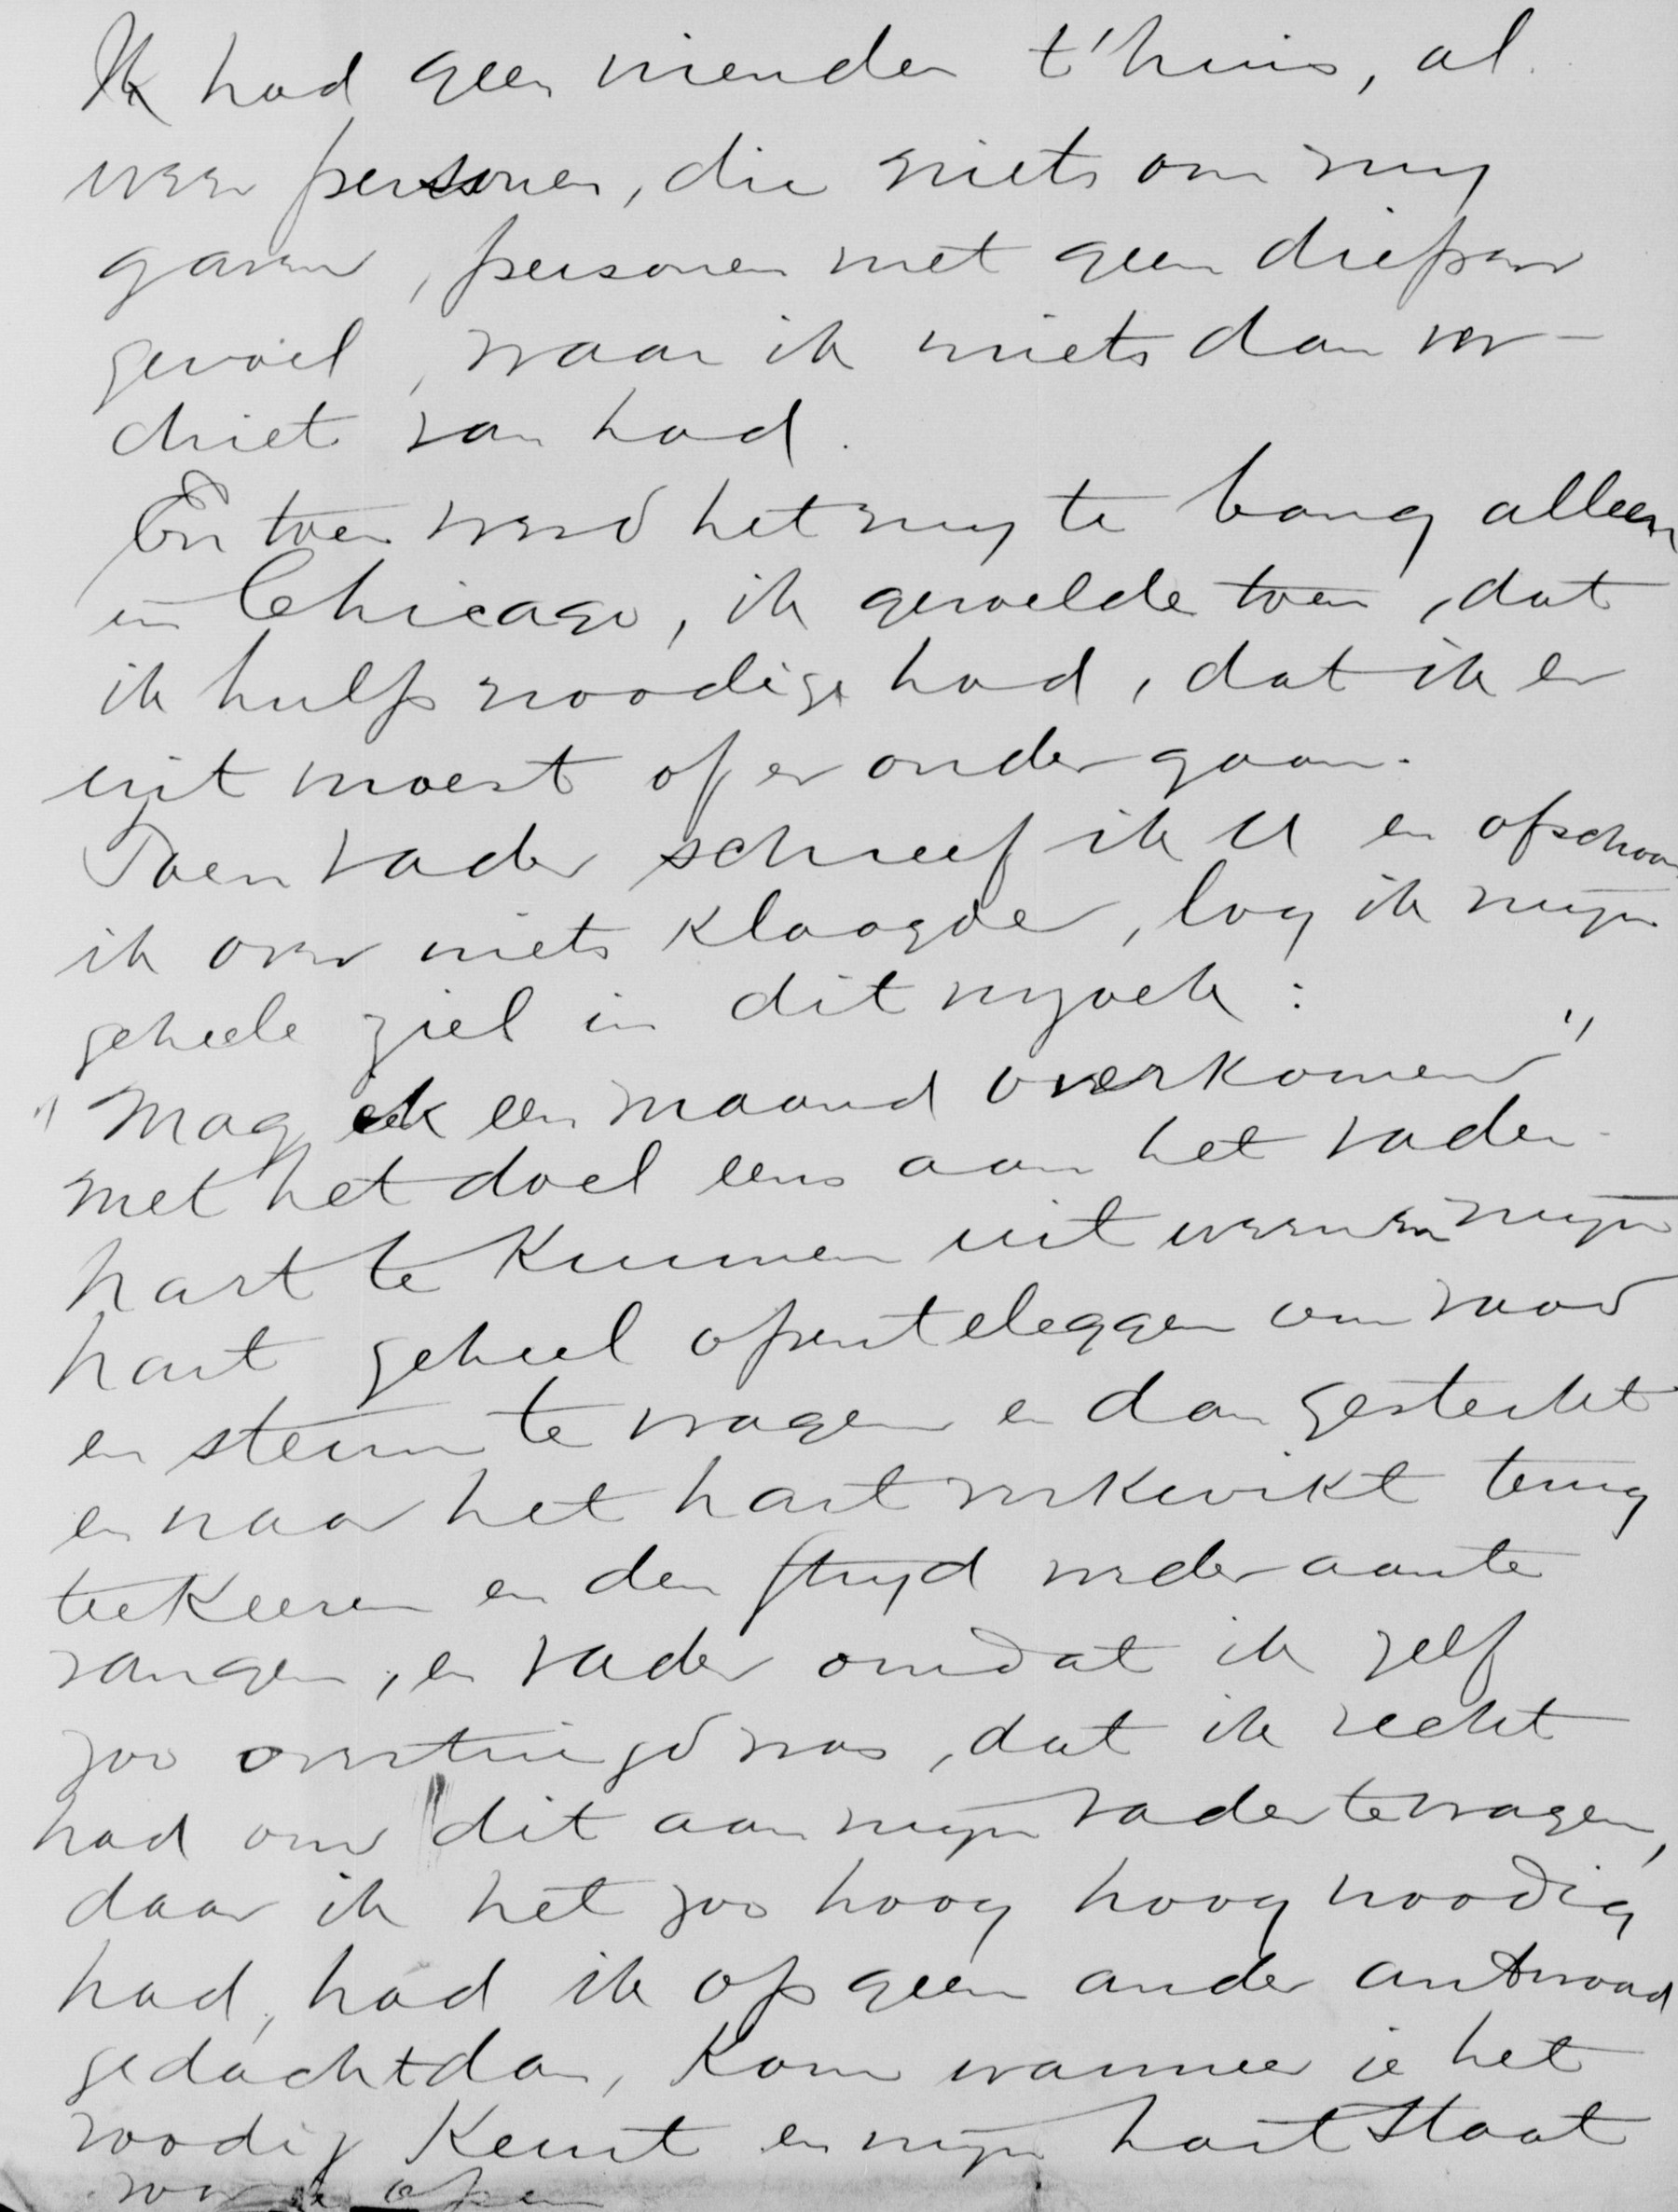 Ik had geen vrienden t'huis, al
weer personen, die niets om mij
gaven, personen met geen dieper
gevoel, waar ik niets dan ver-
driet van had.
En toen werd het mij te bang alleen
in Chicago, ik gevoelde toen, dat
ik hulp noodige had, dat ik er
uit moest of er onder gaan.
Toen vader schreef ik U en ofschoon
ik over niets klaagde, log ik mijn
geheele ziel in dit myoek:
"Mag ik een maand overkomen"
met het doel eens aan het vader
hart te kunnen uit weenen mijn
hart geheel open te leggen om raad
en steun te vragen en dan gesterkt
en naar het hart verkwikt terug
te keeren en den strijd weder aan te
vangen, en vader omdat ik zelf
zoo overtuigd was, dat ik recht
had om dit aan mijn vader te vragen,
daar ik het zoo hoog hoog noodig
had, had ik op geen ander antwoord
gedacht dan, Kom wanneer je het
noodig keurt en mijn hart staat
voor je open